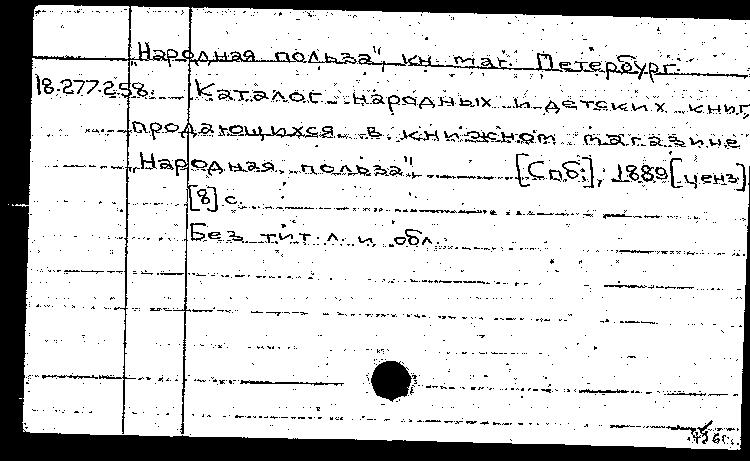 „Народная польза", кн. маг. Петербург.
18.277.258. Каталог народных и детских книг,
продающихся в книжном магазине
„Народная польза", [Спб.], 1889 [ценз]
[8] с.
Без тит. л. и обл.